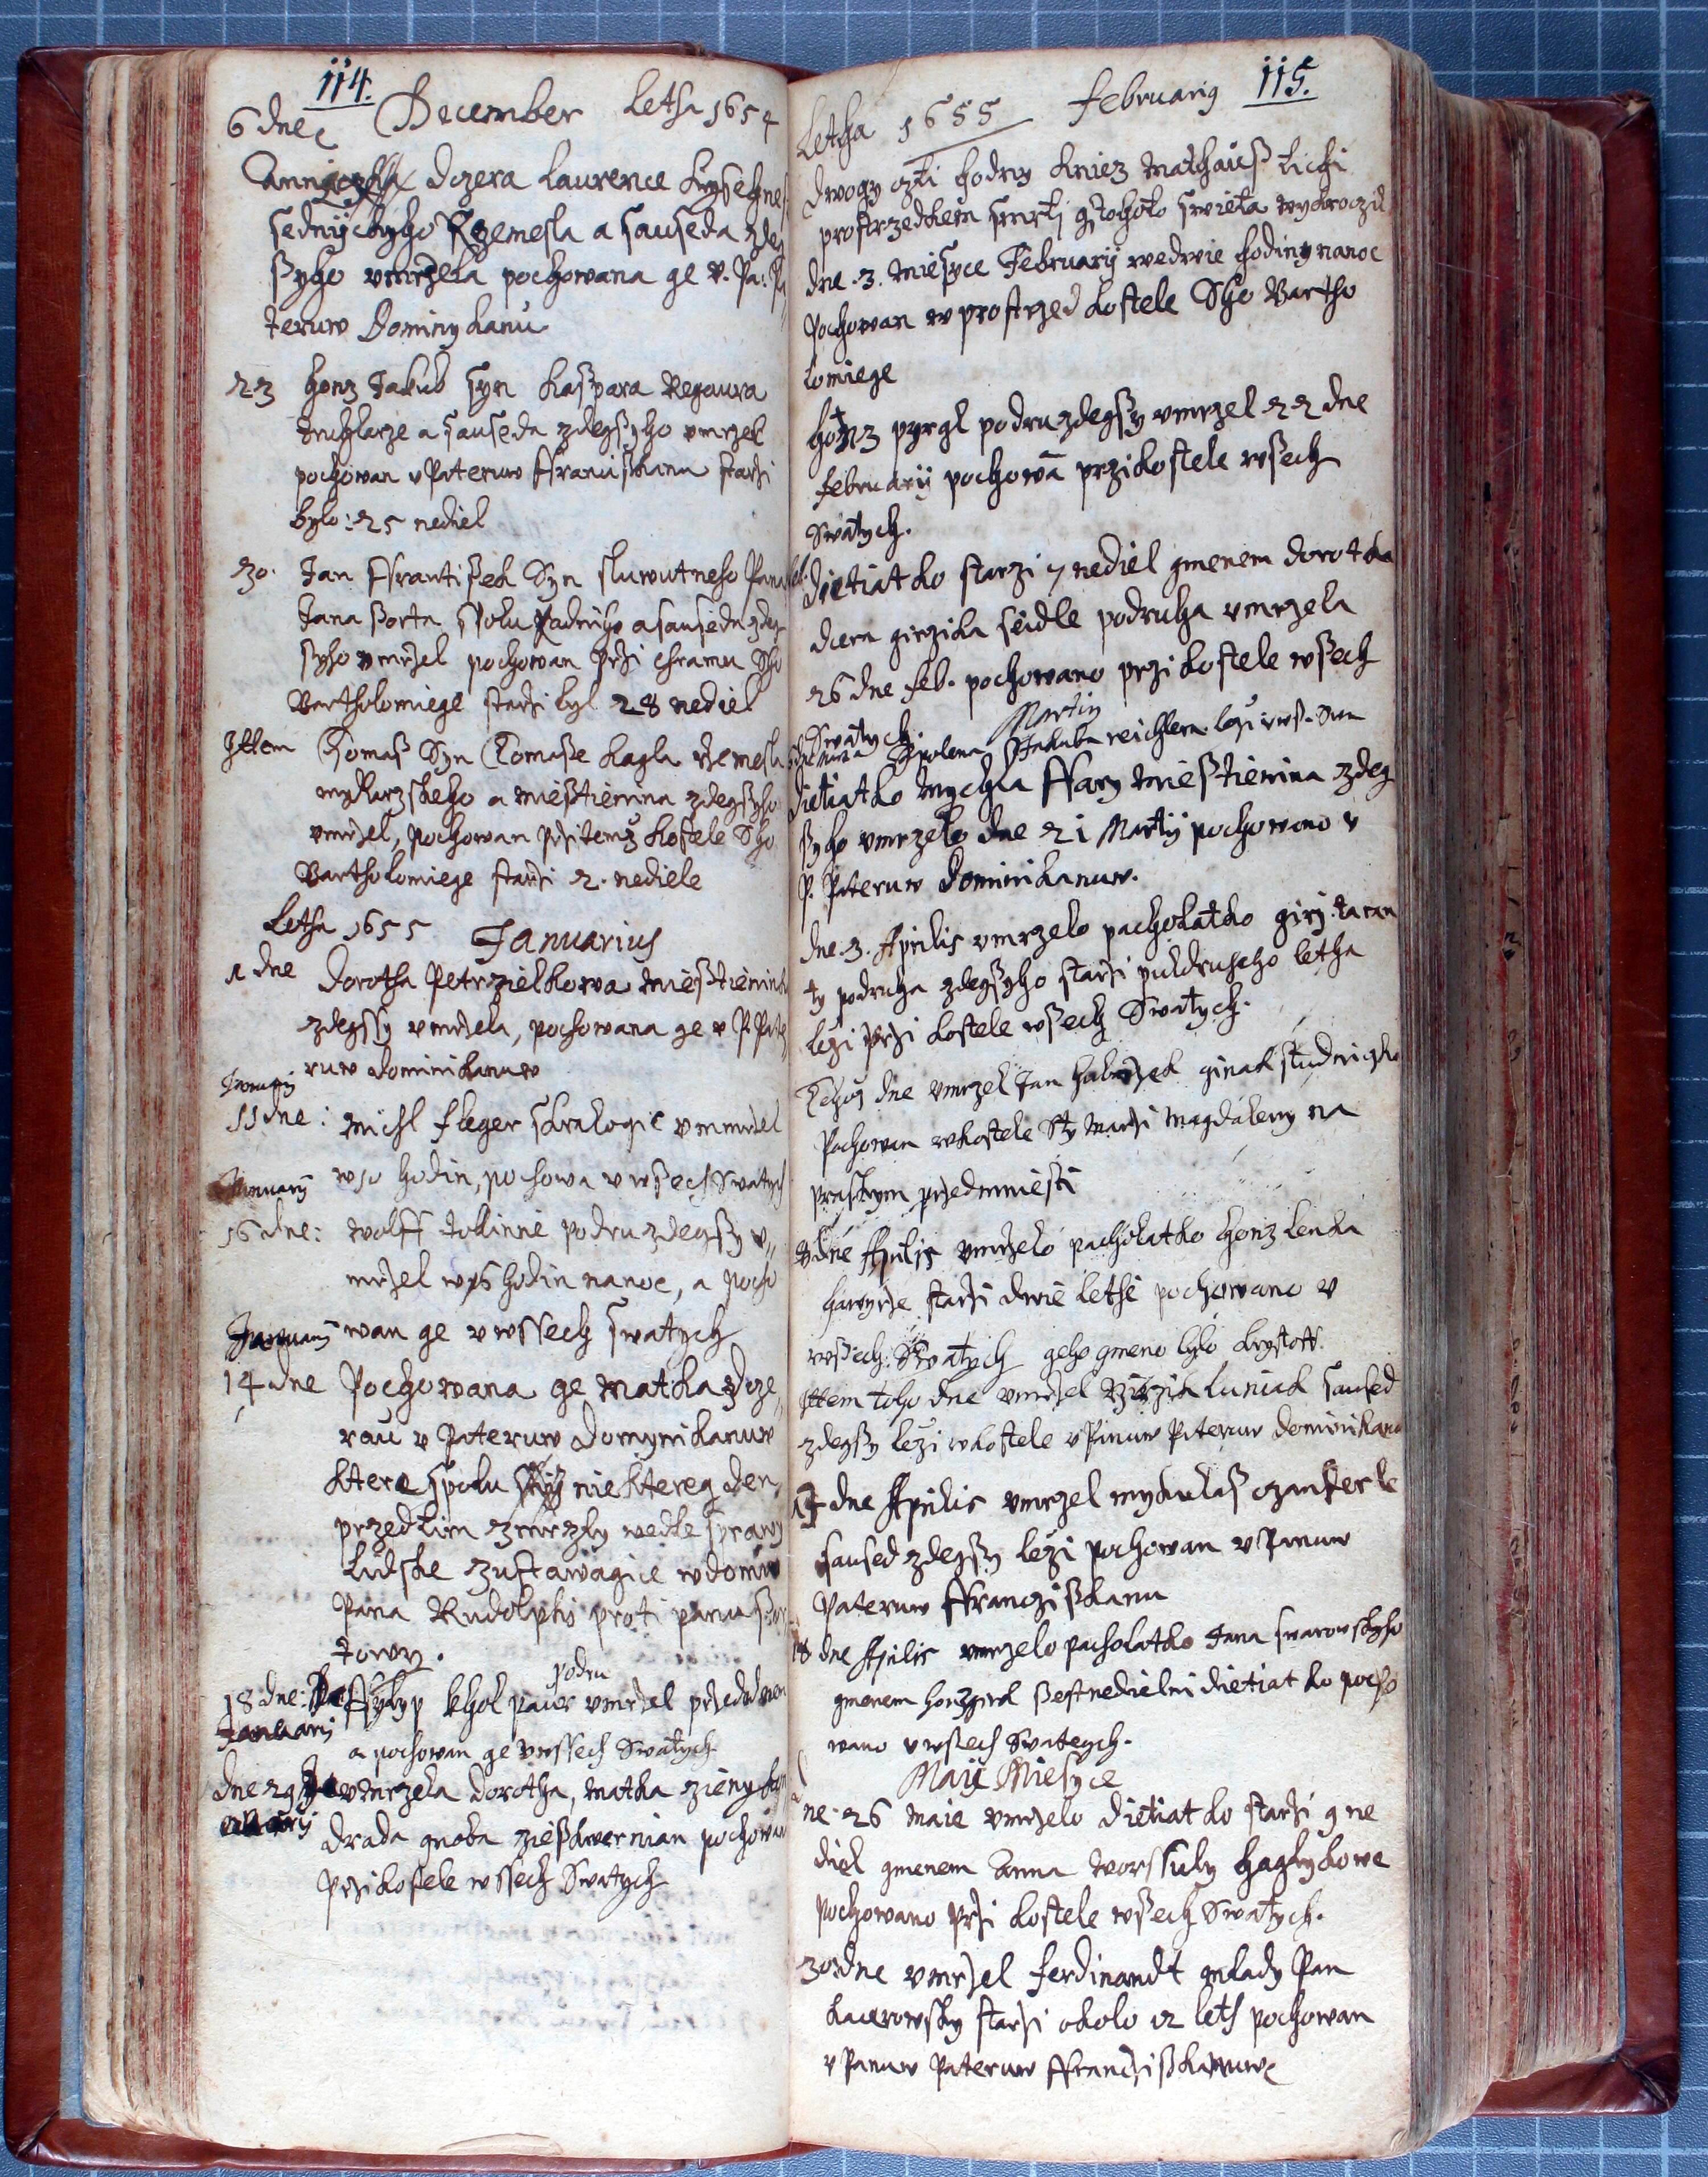 114.
6 dne December Letha 1654
Dczera Laurence
Rzemesla a sauseda zdeg
ßyho vmrzela pochowana ge v. Pa: Pa
teruw Dominykanu
23 honz Jakub syn Kaßpara
truhlarze a sauseda zdegßyho vmrzel
pochowan v Pateruw Ffrancißkanu starzi
bylo: 25 nediel
30. Jan Ffrantißek Syn sluwutneho Pana
Jana ßorta spolu Radniho a sauseda zdeg
ßyho vmrzel pochowan przi chramu Sho
Bartholomiege starzi byl 28 nediel
Ittem Tomaß Syn Tomaße Kagla rzemesla
mydlarzskeho a mießtienina zdegßyho
vmrzel, pochowan przitemz kostele Sho
Bartholomiege starzi 2. nediele
Letha 1655 Januarius
1 dne Dorotha Petrzielkowa mießtienink
zdegssy vmrzela, pochowana ge v P. Pate
ruw Dominikanuw
Januarij
11 dne: Michl fleger vmrzel
w 10 hodin, pochowa v wßech Swatych
Januarij
16 dne: wolff podru zdegßy v„
mrzel w 16 hodin nanoc, a pocho
Januarij wan ge v wssech swatych
14 dne Pochowana ge matka z dcze„
rau v Pateruw Domynikanuw
ktere spolu niektereg den,
przedtim zmrzly wedle sprawy
Lidske zustawagice wdomu
Pana Rudolphi proti panu ßor
towy.
podru
18 dne: Ffylyp paur vmrzel
Januarij
a pochowan ge v wssech Swatych
dne 29 vmrzela Dorotha, matka zieny kon
drada pochowan
przi kostele wssech Swatych
115.
Letha 1655 Februarij
Dwogy czti hodny kniez Mathauß
prostrzedkem smrti z tohoto swieta wykroczil
dne. 3. miesyce Februarij wedwie hodiny nanoc
Pochowan w prostrzed kostele Sho Bartho
lomiege
honz pyrgl podru zdegßy vmrzel 22 dne
februarij pochowā przi kostele wßech
Swatych.
dietiatko starzi 7 nediel gmenem dorotka
dcera girzika seidle podruha vmrzela
26 dne feb. pochowano przi kostele wßech
Swatych.
Martij
Jakuba reichlera lezi
dietiatko Mychla Ffary mießtienina zdeg
ßyho vmrzelo dne 21 Martij pochowano v
P. Pateruw Dominikanuw.
dne. 3. Aprilis vmrzelo pacholatko girz.
ty podruha zdegßyho starzi puldruheho letha
lezi przi kostele wßech Swatych.
Tehoz dne vmrzel Jan ginak
Pochowan wkostele Sty Marzi Magdaleny na
prazskym przedmiesti
dne Aprilis vmrzelo pacholatko honz
starzi dwie lethi pochowano v
wßech Swatych geho gmeno bylo krystoff.
Ittem toho dne vmrzel saused
zdegßy lezi wkostele v Panuw Pateruw Dominikanu
17 dne Aprilis vmrzel mykulaß
saused zdegßy lezi pochowan v Panuw
Pateruw Ffranczißkanu
18 dne Aprilis vmrzelo pacholatko Jana
gmenem ßestnedielni dietiatko pocho
wano v wßech Swateych.
Maij Miesyce
ne. 26 Maie vmrzelo dietiatko starzi 9 ne
diel gmenem Anna worssuly
Pochowano przi kostele wßech Swatych.
30. dne vmrzel ferdinandt mlady Pan
starzi okolo 12 leth pochowan
v Panuw Pateruw Ffranczißkanuw